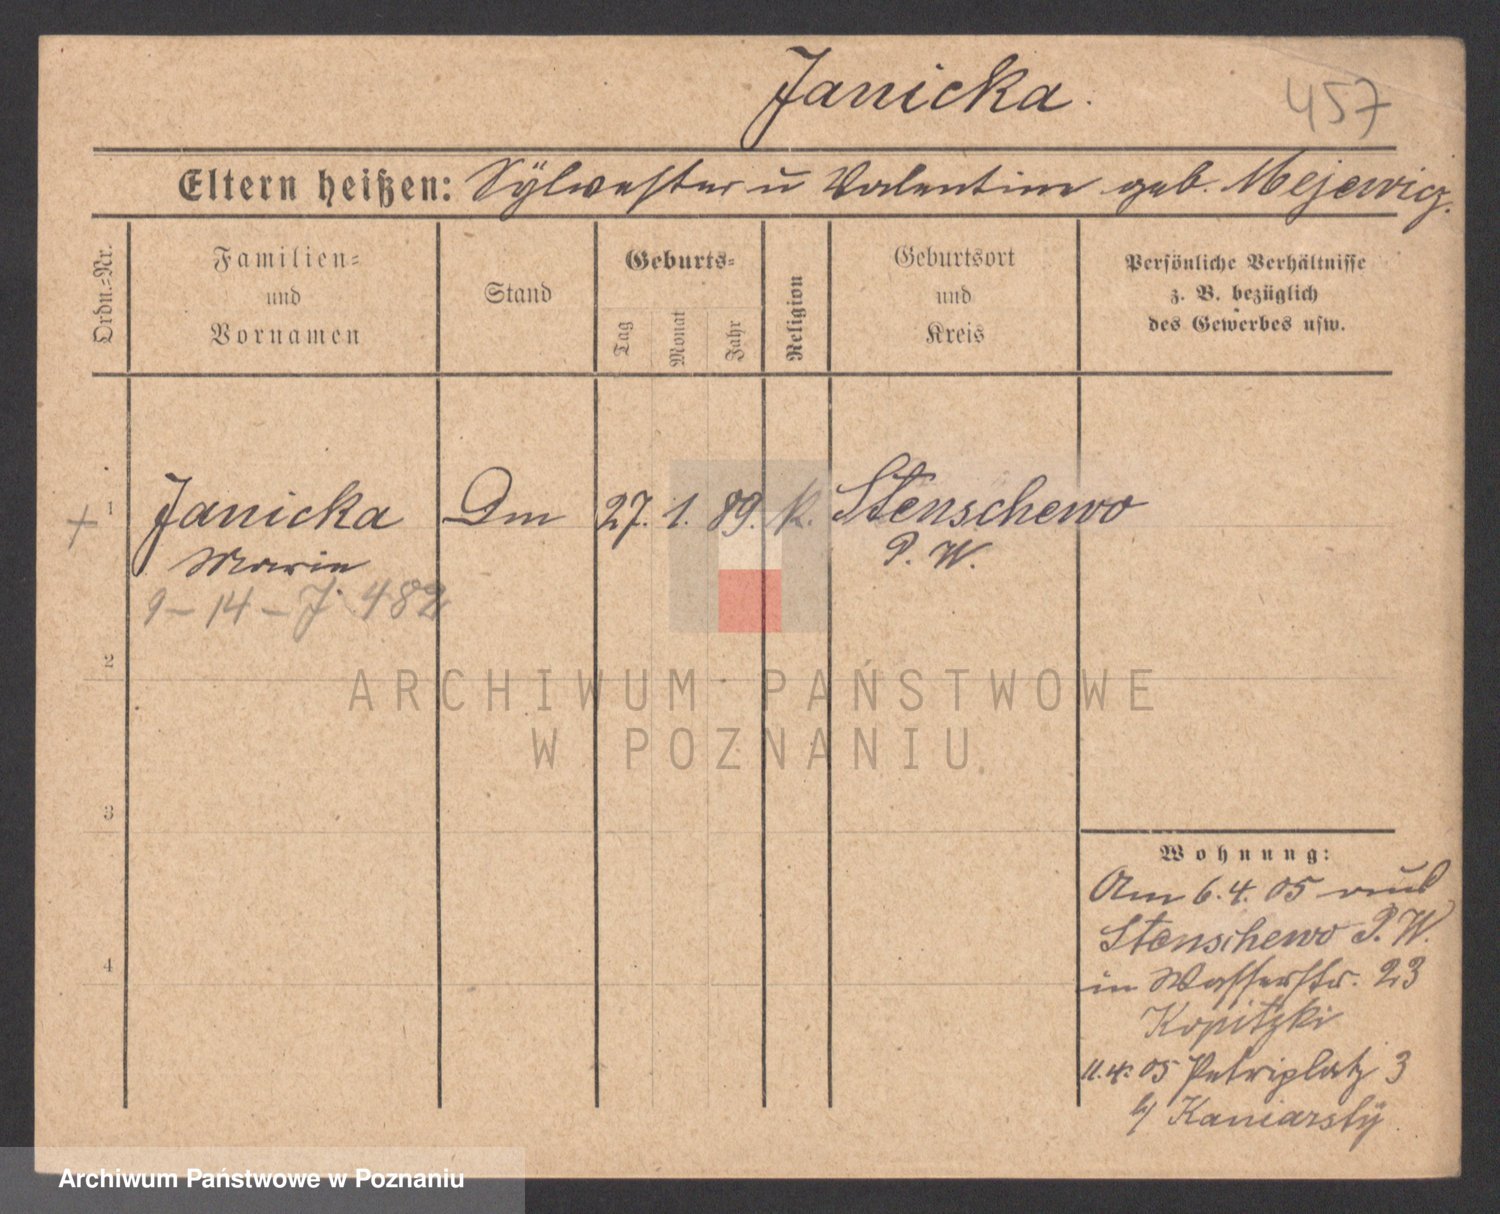 Janicka.
457
Eltern heißen: Sÿlvester u Valentine geb. Mejewicz.
Ordn.-Nr.
Familien-
und
Vornamen
Stand
Geburts-
Tag
Monat
Jahr
Religion
Geburtsort
und
Kreis
Persönliche Verhältnisse
z. B. bezüglich
des Gewerbes usw.
+ 1 Janicka Dm 27. 1. 89. k. Stenschewo
Marie P. W.
9-14-J. 482
2
3
4
Wohnung:
Am 6.4.05 aus
Stenschewo P. W.
in Wasserstr. 23
Kopitzki
11.4.05 Petriplatz 3
b/ Kaniarsky
ARCHIWUM PAŃSTWOWE
W POZNANIU
Archiwum Państwowe w Poznaniu